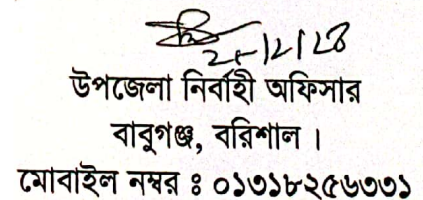 উপজেলা নির্বাহী অফিসার
বাবুগঞ্জ, বরিশাল ।
মোবাইল নম্বর ঃ ০১৩১৮২৫৬৩৩১